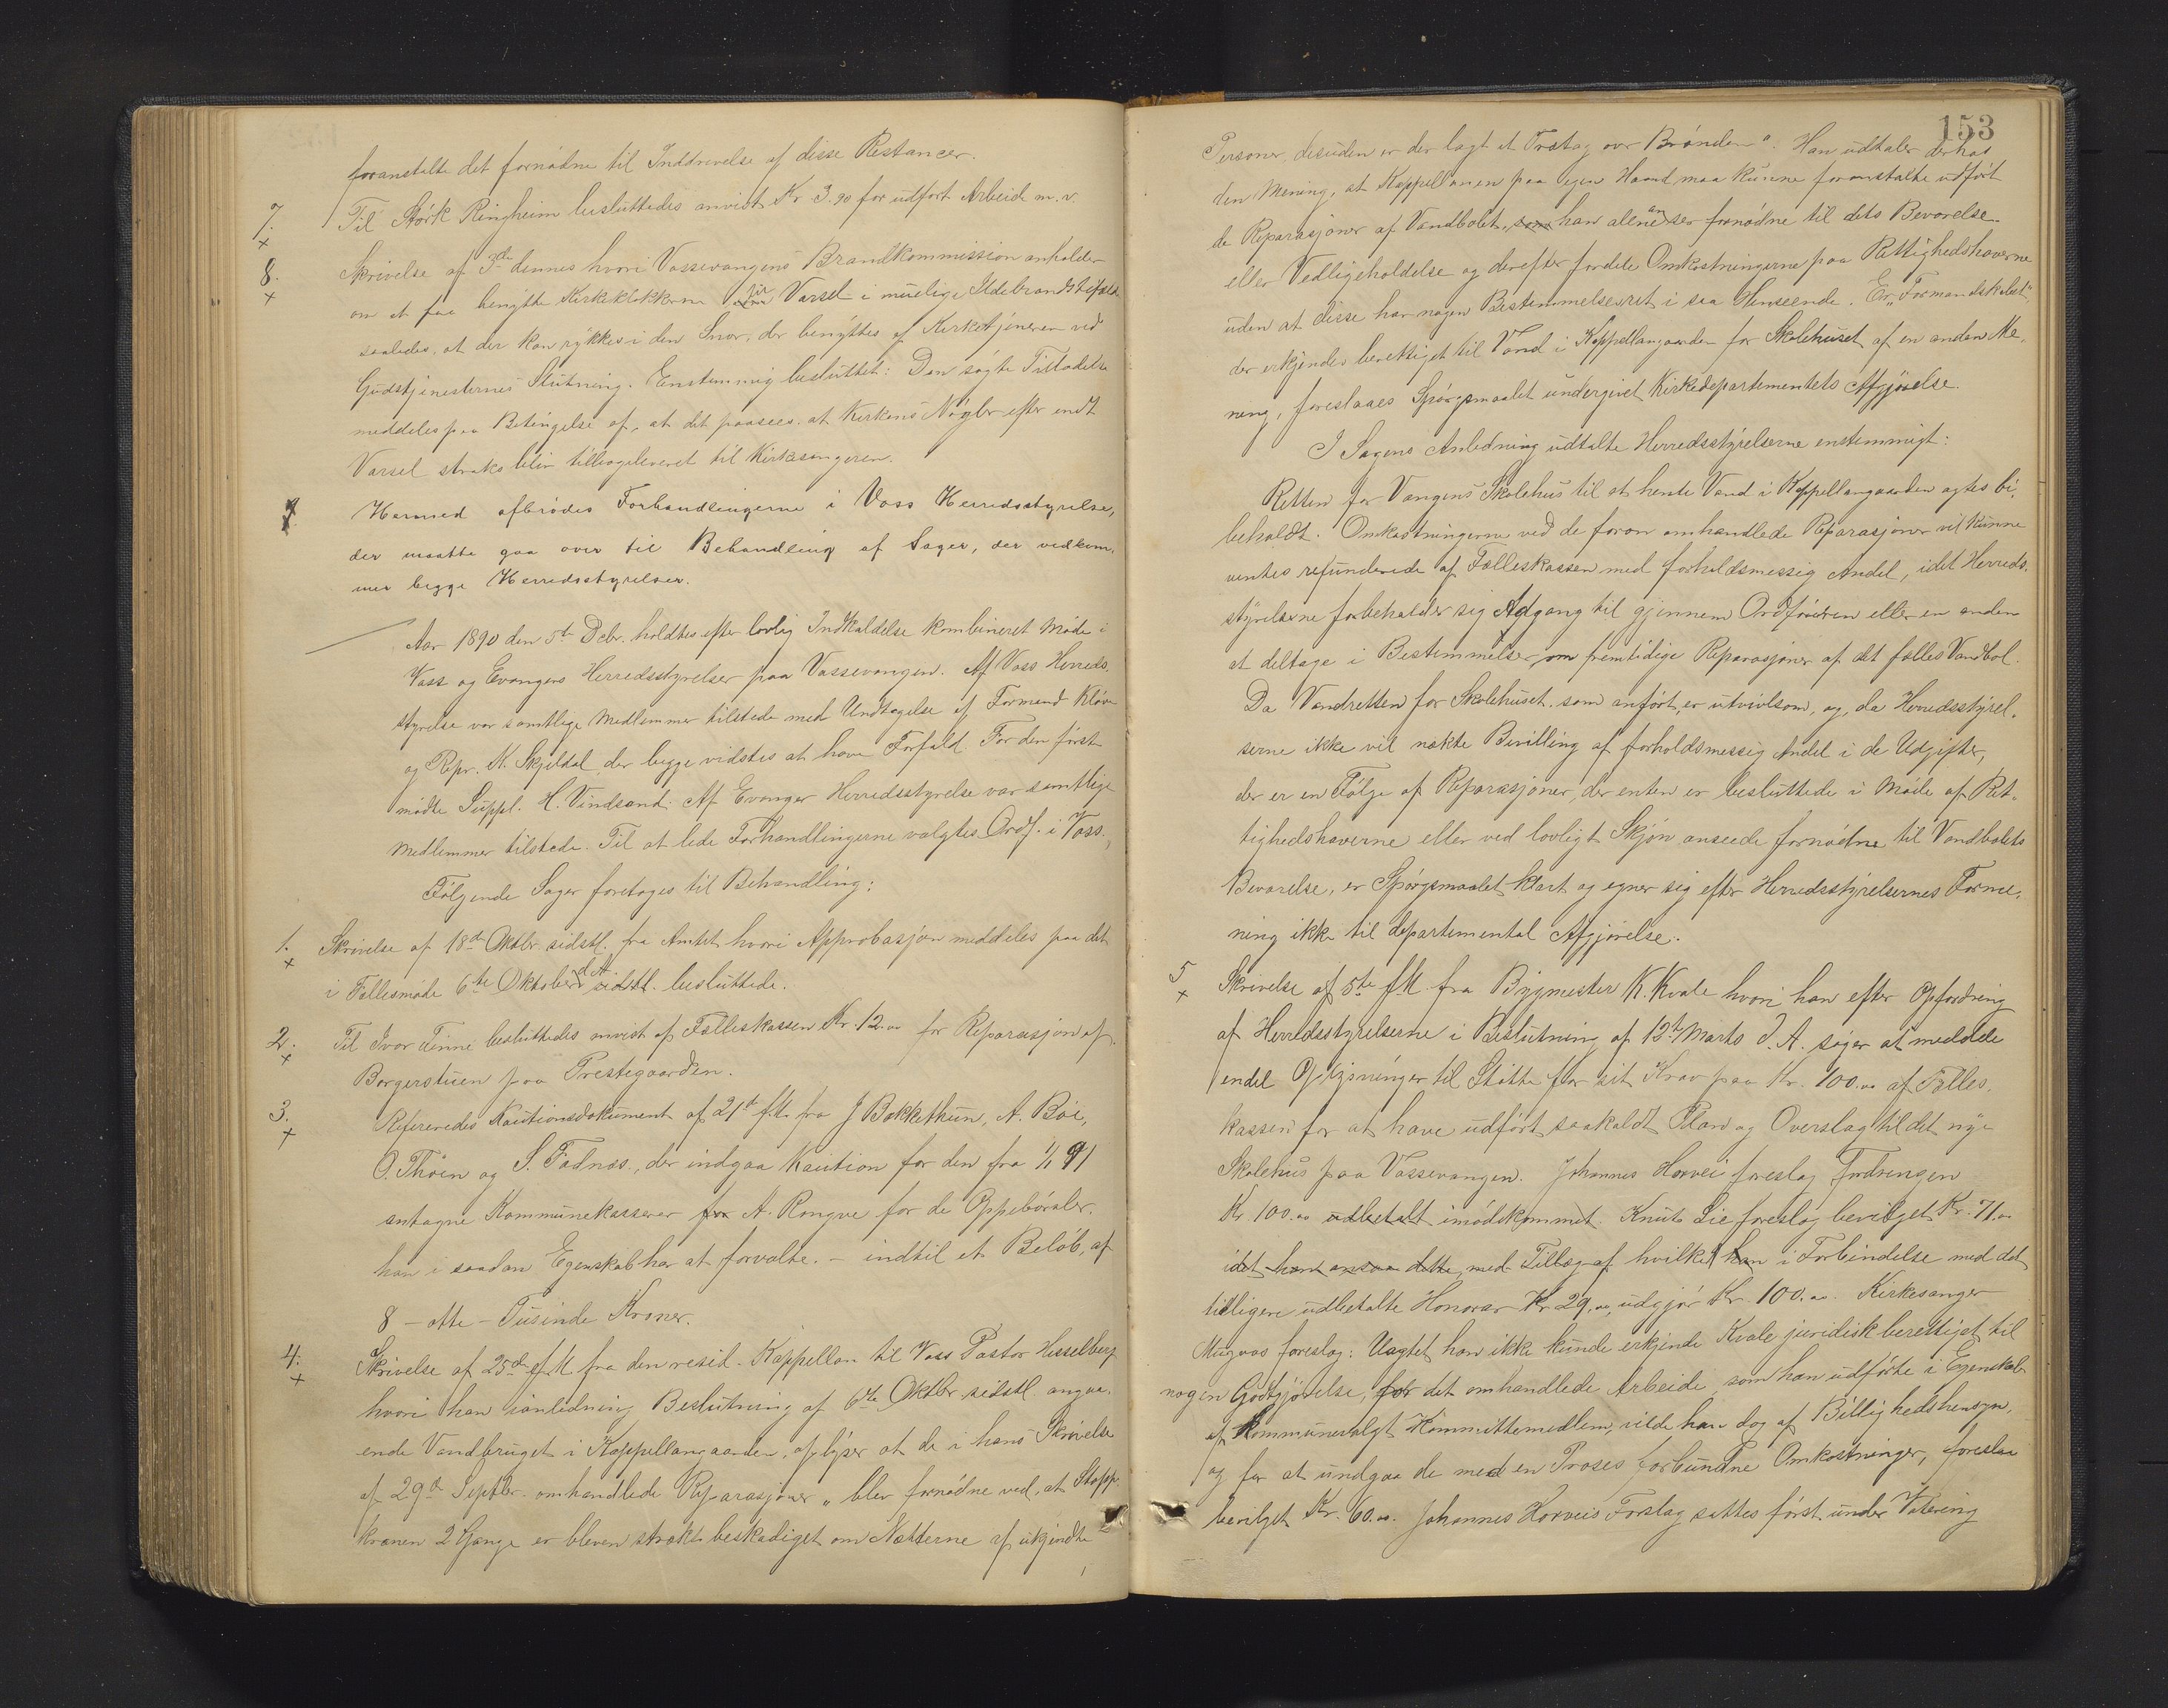 foranstalte det fornødne til Inddrivelse af disse Restancer.
7. Til Størk Ringheim besluttedes anvist Kr 3.90 for udført Arbeide m. v.
8. Skrivelse af 3die dennes hvori Vossevangens Brandkommission anholder
om at faa benytte Kirkeklokkerne til Varsel i muelige Ildebrandstilfælde
saaledes, at der kan rykkes i den Snor, der benyttes af Kirketjeneren ved
Gudstjenesternes Slutning. Enstemmig besluttet: Den søgte Tilladelse
meddeles paa Betingelse af, at det paasees, at Kirkens Nøgler efter endt
Varsel straks blir tilbageleveret til Kirkesangeren.
Hermed afbrødes Forhandlingerne i Voss Herredsstyrelse,
der maatte gaa over til Behandling af Sager, der vedkom-
mer begge Herredsstyrelser.
Aar 1890 den 5te Decbr. holdtes efter lovlig Indkaldelse kombineret Møde i
Voss og Evangers Herredsstyrelser paa Vossevangen. Af Voss Herreds-
styrelse var samtlige Medlemmer tilstede med Undtagelse af Formand Kløve
og Repr. K. Skjeldal, der begge vidstes at have Forfald. For den først
mødte Suppl. H. Vindsand. Af Evanger Herredsstyrelse var samtlige
Medlemmer tilstede. Til at lede Forhandlingerne valgtes Ordf. i Voss.
Følgende Sager foretages til Behandling:
1. Skrivelse af 18de Oktbr. sidstl. fra Amtet hvori Approbasjon meddeles paa det
i Fællesmøde 6te Oktober d. A. sidstl. besluttede.
2. Til Ivar Finne besluttedes anvist af Fælleskassen Kr. 12.00 for Reparasjon af
Borgerstuen paa Prestegaarden.
3. Refereredes Kautionsdokument af 21de f.M. fra J Bakkethun, A. Bøe,
O. Thöen og S. Fadnæs, der indgaa Kaution for den fra 1/1 91
antagne Kommunekasserer for A. Rongve for de Oppebørsler,
han i saadan Egenskab har at forvalte. – indtil et Beløb af
8 – otte – Tusinde Kroner.
4. Skrivelse af 25de f. M. fra den resid. Kappellan til Voss Pastor Hesselberg
hvori han i anledning Beslutning af 6te Oktbr. sidstl. angaa-
ende Vandbruget i Kappellangaarden, oplyser at de i hans Skrivelse
af 29de Septbr. omhandlede Reparasjoner „blev fornødne ved, at Stopp-
kranen 2 Gange er bleven strakt beskadiget om Nætterne af ukjendte
153
Personer, desuden er der lagt et Trætag over Brønden". Han udtaler derhos
den Mening, at Kappellanen paa egen Haand maa kunne foranstalte udført
de Reparasjoner af Vandbolet, som han allene anser fornødne til dets Bevarelse
eller Vedligeholdelse og derefter fordele Omkostningerne paa Rettighedshaverne
uden at disse har nogen Bestemmelsesret i saa Henseende. Er „Formandskabet",
der erkjendes berettiget til Vand i Kappellangaarden for Skolehuset af en anden Me-
ning, foreslaaes Spørgsmaalet undergivet Kirkedepartementets Afgjørelse.
I Sagens Anledning udtalte Herredsstyrelserne enstemmigt:
Retten for Vangens Skolehus til at hente Vand i Kappellangaarden agtes bi-
beholdt. Omkostningerne ved de foran omhandlede Reparasjoner vil kunne
ventes refunderede af Fælleskassen med forholdsmessig Andel, idet Herreds-
styrelserne forbeholder sig Adgang til gjennem Ordføreren eller en anden
at deltage i Bestemmelser om fremtidige Reparasjoner af det fælles Vandbol.
Da Vandretten for Skolehuset, som anført, er utvivlsom, og, da Herredsstyrel-
serne ikke vil nækte Bevilling af forholdsmessig Andel i de Udgifter,
der er en Følge af Reparasjoner, der enten er besluttede i Møde af Ret-
tighedshaverne eller ved lovligt Skjøn anseede fornødne til Vandbolets
Bevarelse, er Spørgsmaalet klart og egner sig efter Herredsstyrelsernes Forme-
ning ikke til departemental Afgjørelse.
5 Skrivelse af 5te f.M. fra Bygmester K. Kvale hvori han efter Opfordring
af Herredsstyrelserne i Beslutning af 12te Marts d. A. søger at meddele
endel Oplysninger til Støtte for sit Krav paa Kr. 100.00 af Fælles-
kassen for at have udført saakaldt Plan og Overslag til det nye
Skolehus paa Vossevangen. Johannes Horvei foreslog Fordringen
Kr 100.00 udbetalt imødekommet. Knut Lie foreslog bevilget Kr. 71.00
idet han ansaa dette, med Tillæg af hvilket han i Forbindelse med det
tidligere udbetalte Honorar Kr 29.00, udgjør Kr. 100.00. Kirkesanger
Mugaas foreslog: Uagtet han ikke kunde erkjende Kvale juridisk berettiget til
nogen Godtgjørelse, for det omhandlede Arbeide, som han udførte i Egenskab
af kommunevalgt Kommittemedlem, vilde han dog af Billighedshensyn,
og for at undgaa de med en Proses forbundne Omkostninger, foreslaa
bevilget Kr. 60.00. Johannes Horveis Forslag sattes først under Votering